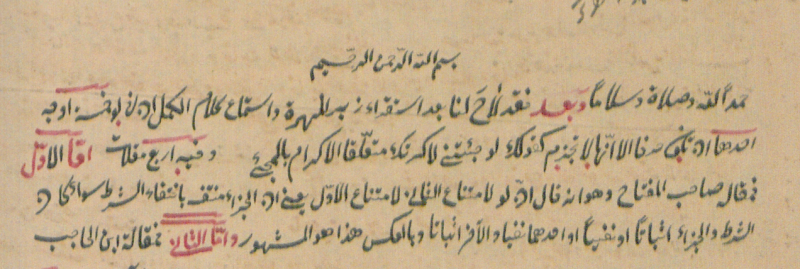 بسم الله الرحمن الرحيم
حمداً لله وصلاة وسلاماً وبعد فقد لاح لنا بعد استقراء زبر المهرة واستماع كلام الكمل ان لو خمسة اوجه
احدها ان تكون حرفا الا انها لا تجزم كقولك لو جئتني لاكرمتك متعلقا الاكرام بالمجئ وفيه اربع مقلات اما الاول
فقال صاحب المفتاح وهو انه قال ان لو لامتناع الثاني لامتناع الاول يعني ان الجزاء منتف بانتفاء الشرط سواء كان
الشرط والجزاء اثباتاً او نفياً او احدهما نفيا والآخر اثباتا وبالعكس هذا هو المشهور واما الثانى فمقالة ابن الحاجب